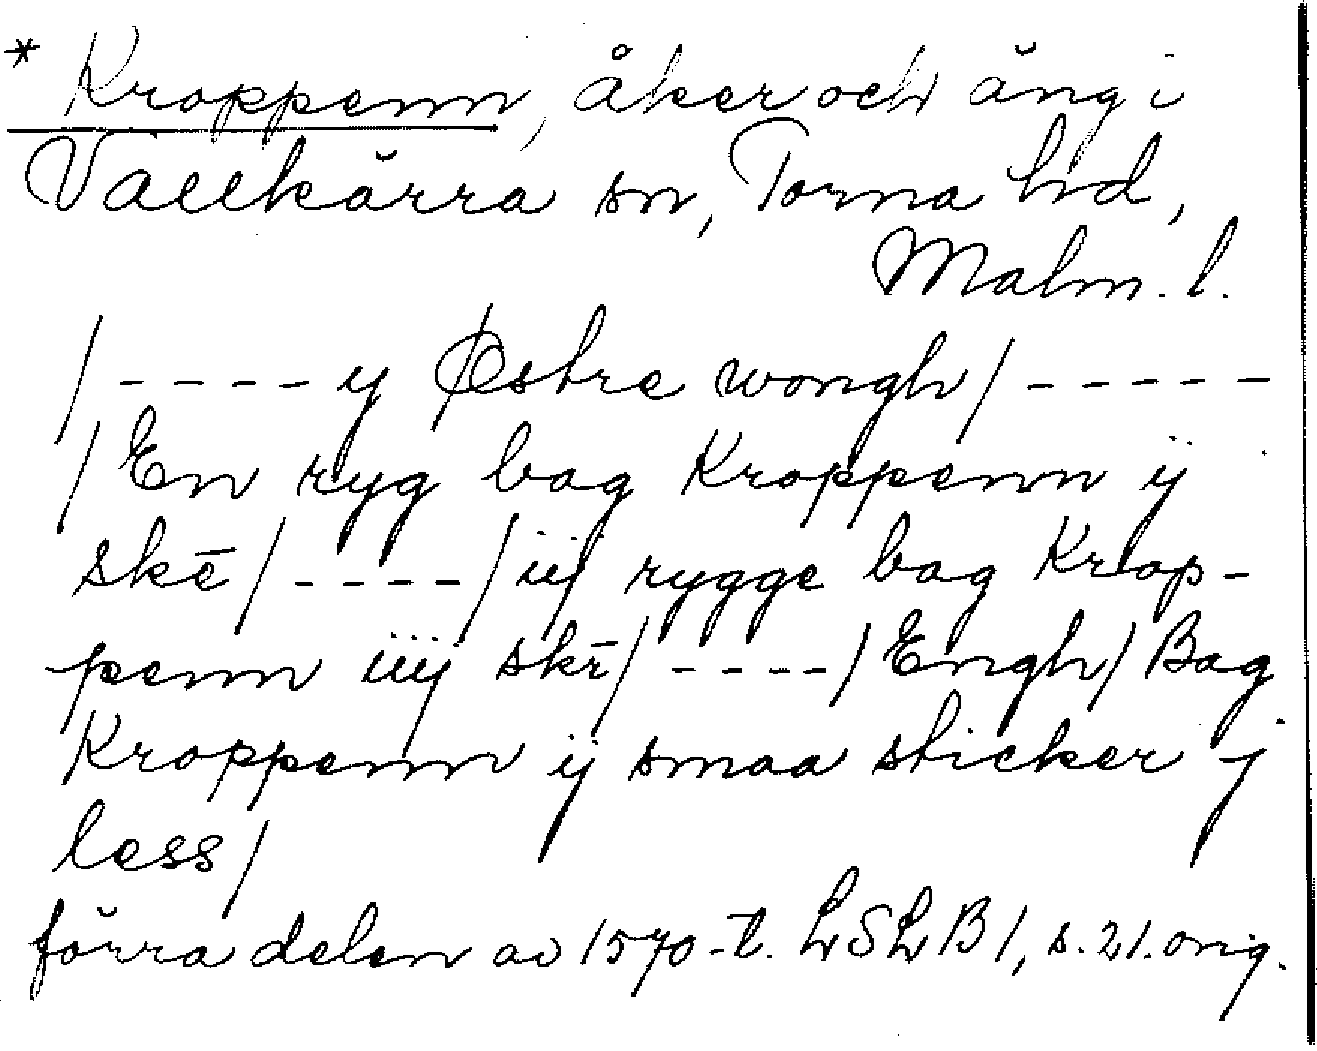 * Kroppenn, åker och äng i
Vallkärra sn, Torna hd,
Malm. l.
/ - - - - y Østre wongh / - - - - -
/ En ryg bag Kroppenn ÿ
skē / - - - - / iij rygge bag Krop-
penn iiij skē / - - - - / Engh / Bag
Kroppenn ij smaa sticker j
less /
förra delen av 1570-t. LSLB 1, s. 21. orig.